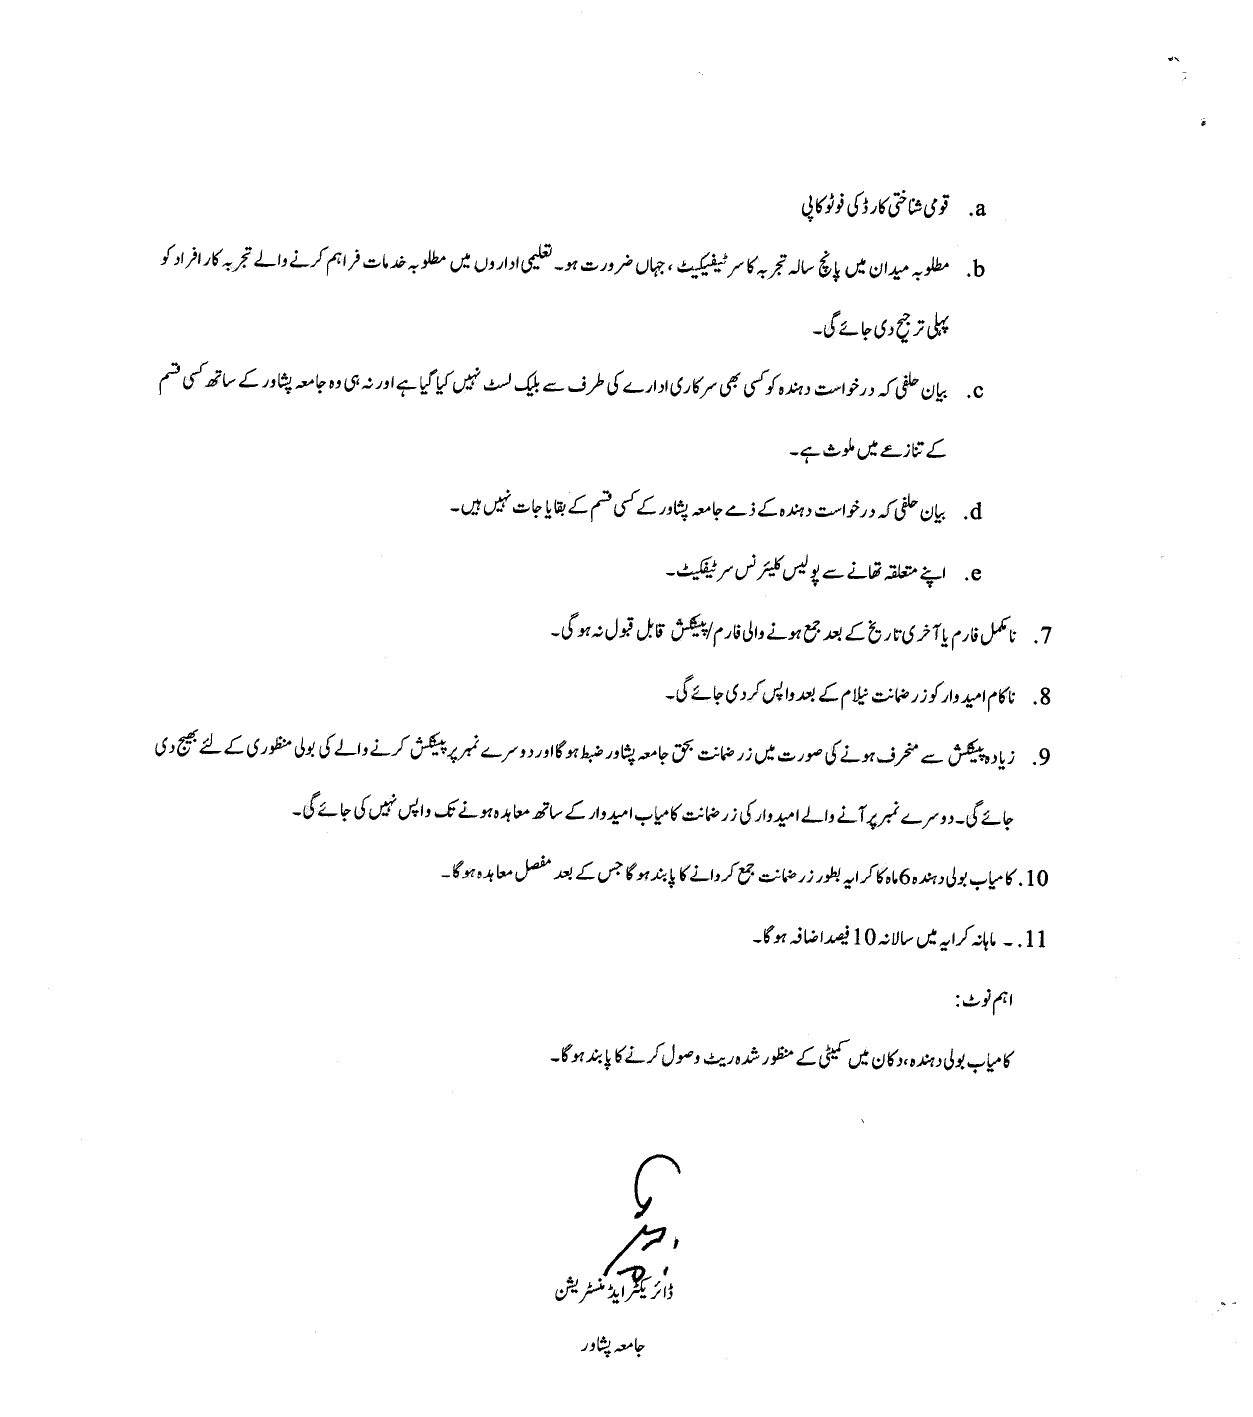 a. قومی شناختی کارڈ کی فوٹو کاپی
b. مطلوبہ میدان میں پانچ سالہ تجربہ کا سرٹیفیکیٹ ، جہاں ضرورت ہو۔ تعلیمی اداروں میں مطلوبہ خدمات فراہم کرنے والے تجربہ کار افراد کو
پہلی ترجیح دی جائے گی۔
c. بیان حلفی کہ درخواست دہندہ کو کسی بھی سرکاری ادارے کی طرف سے بلیک لسٹ نہیں کیا گیا ہے اور نہ ہی وہ جامعہ پشاور کے ساتھ کسی قسم
کے تنازعے میں ملوث ہے۔
d. بیان حلفی کہ درخواست دہندہ کے ذمے جامعہ پشاور کے کسی قسم کے بقایا جات نہیں ہیں۔
e. اپنے متعلقہ تھانے سے پولیس کلیئرنس سرٹیفکیٹ۔
7. نامکمل فارم یا آخری تاریخ کے بعد جمع ہونے والی فارم/پیشکش قابل قبول نہ ہو گی۔
8. ناکام امیدوار کو زر ضمانت نیلام کے بعد واپس کر دی جائے گی۔
9. زیادہ پیشکش سے منحرف ہونے کی صورت میں زر ضمانت بحق جامعہ پشاور ضبط ہو گا اور دوسرے نمبر پر پیشکش کرنے والے کی بولی منظوری کے لئے بھیج دی
جائے گی۔ دوسرے نمبر پر آنے والے امیدوار کی زر ضمانت کامیاب امیدوار کے ساتھ معاہدہ ہونے تک واپس نہیں کی جائے گی۔
10. کامیاب بولی دہندہ 6 ماہ کا کرایہ بطور زر ضمانت جمع کروانے کا پابند ہو گا جس کے بعد مفصل معاہدہ ہو گا۔
11. ۔ ماہانہ کرایہ میں سالانہ 10 فیصد اضافہ ہو گا۔
اہم نوٹ:
کامیاب بولی دہندہ، دکان میں کمیٹی کے منظور شدہ ریٹ وصول کرنے کا پابند ہو گا۔
ڈائریکٹر ایڈمنسٹریشن
جامعہ پشاور